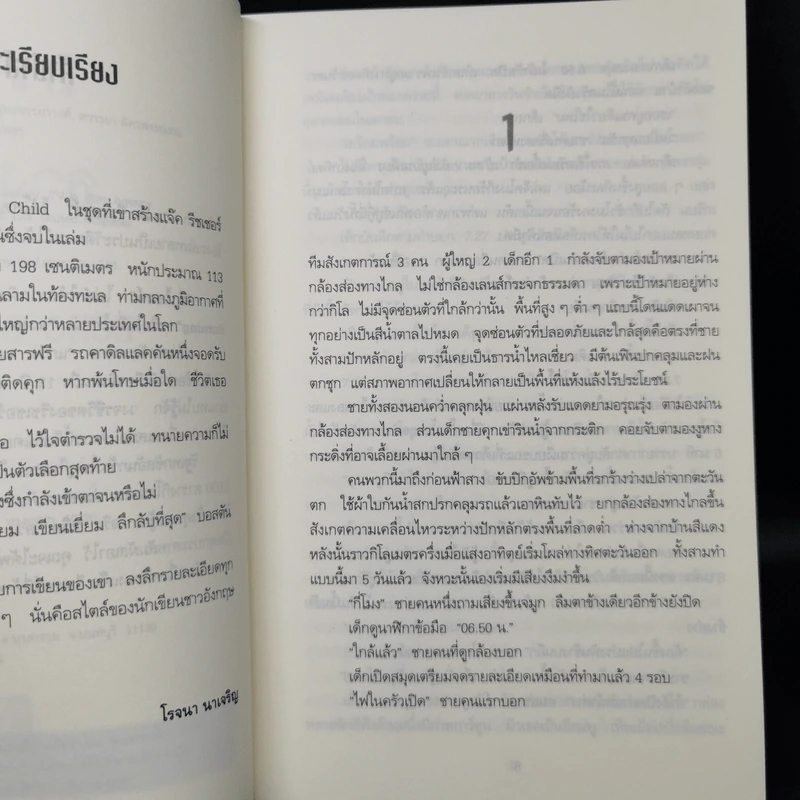 ะเรียบเรียง
Child ในชุดที่เขาสร้างแจ๊ค รีชเชอร์
นซึ่งจบในเล่ม
198 เซนติเมตร หนักประมาณ 113
นลามในท้องทะเล ท่ามกลางภูมิอากาศที่
ใหญ่กว่าหลายประเทศในโลก
ยสารฟรี รถคาดิลแลคคันหนึ่งจอดรับ
ติดคุก หากพ้นโทษเมื่อใด ชีวิตเธอ
อ ไว้ใจตำรวจไม่ได้ ทนายความก็ไม่
ป็นตัวเลือกสุดท้าย
งซึ่งกำลังเข้าตาจนหรือไม่
ยม เขียนเยี่ยม ลึกลับที่สุด" บอสตัน
บการเขียนของเขา ลงลึกรายละเอียดทุก
ๆ นั่นคือสไตล์ของนักเขียนชาวอังกฤษ
โรจนา นาเจริญ
1
ทีมสังเกตการณ์ 3 คน ผู้ใหญ่ 2 เด็กอีก 1 กำลังจับตามองเป้าหมายผ่าน
กล้องส่องทางไกล ไม่ใช่กล้องเลนส์กระจกธรรมดา เพราะเป้าหมายอยู่ห่าง
กว่ากิโล ไม่มีจุดซ่อนตัวที่ใกล้กว่านั้น พื้นที่สูง ๆ ต่ำ ๆ แถบนี้โดนแดดเผาจน
ทุกอย่างเป็นสีน้ำตาลไปหมด จุดซ่อนตัวที่ปลอดภัยและใกล้สุดคือตรงที่ชาย
ทั้งสามปักหลักอยู่ ตรงนี้เคยเป็นธารน้ำไหลเชี่ยว มีต้นเฟินปกคลุมและฝน
ตกชุก แต่สภาพอากาศเปลี่ยนให้กลายเป็นพื้นที่แห้งแล้งไร้ประโยชน์
ชายทั้งสองนอนคว่ำคลุกฝุ่น แผ่นหลังรับแดดยามอรุณรุ่ง ตามองผ่าน
กล้องส่องทางไกล ส่วนเด็กชายคุกเข่ารินน้ำจากกระติก คอยจับตามองงูหาง
กระดิ่งที่อาจเลื้อยผ่านมาใกล้ ๆ
คนพวกนี้มาถึงก่อนฟ้าสาง ขับปิกอัพข้ามพื้นที่รกร้างว่างเปล่าจากตะวัน
ตก ใช้ผ้าใบกันน้ำสกปรกคลุมรถแล้วเอาหินทับไว้ ยกกล้องส่องทางไกลขึ้น
สังเกตความเคลื่อนไหวระหว่างปักหลักตรงพื้นที่ลาดต่ำ ห่างจากบ้านสีแดง
หลังนั้นราวกิโลเมตรครึ่งเมื่อแสงอาทิตย์เริ่มโผล่ทางทิศตะวันออก ทั้งสามทำ
แบบนี้มา 5 วันแล้ว จังหวะนั้นเองเริ่มมีเสียงงึมงำขึ้น
"กี่โมง" ชายคนหนึ่งถามเสียงขึ้นจมูก ลืมตาข้างเดียวอีกข้างยังปิด
เด็กดูนาฬิกาข้อมือ "06.50 น."
"ใกล้แล้ว" ชายคนที่ดูกล้องบอก
เด็กเปิดสมุดเตรียมจดรายละเอียดเหมือนที่ทำมาแล้ว 4 รอบ
"ไฟในครัวเปิด" ชายคนแรกบอก